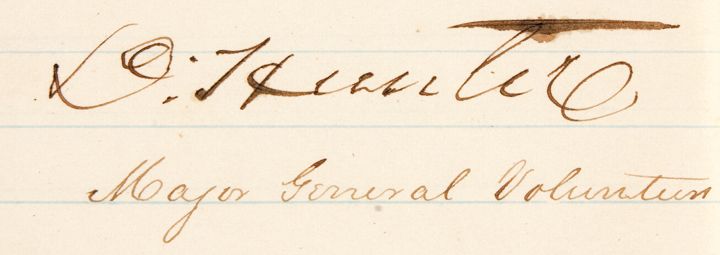 D. Hunter
Major General Volunteers